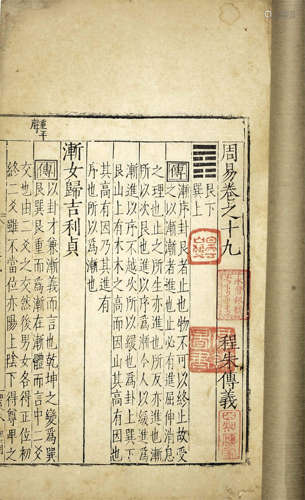 周易卷之十九
程朱傳義
艮下
巽上
傳 漸序卦艮者止也物不可以終止故受
之以漸漸者進也止必有進屈伸消息
之理也止之所生亦進也所反亦進也漸
所以次艮也進以序爲漸今人以緩進爲
漸進以序不越次所以緩也爲卦上巽下
艮山上有木木之高而因山其高有因也
其高有因乃其進有
序也所以爲漸也
漸女歸吉利貞
重平聲
傳 以卦才兼漸義而言也乾坤之變爲巽
艮巽艮重而爲漸在漸體而言中二爻
交也由二爻之交然後男女各得正位初
終二爻雖不當位亦陽上陰下得尊卑之